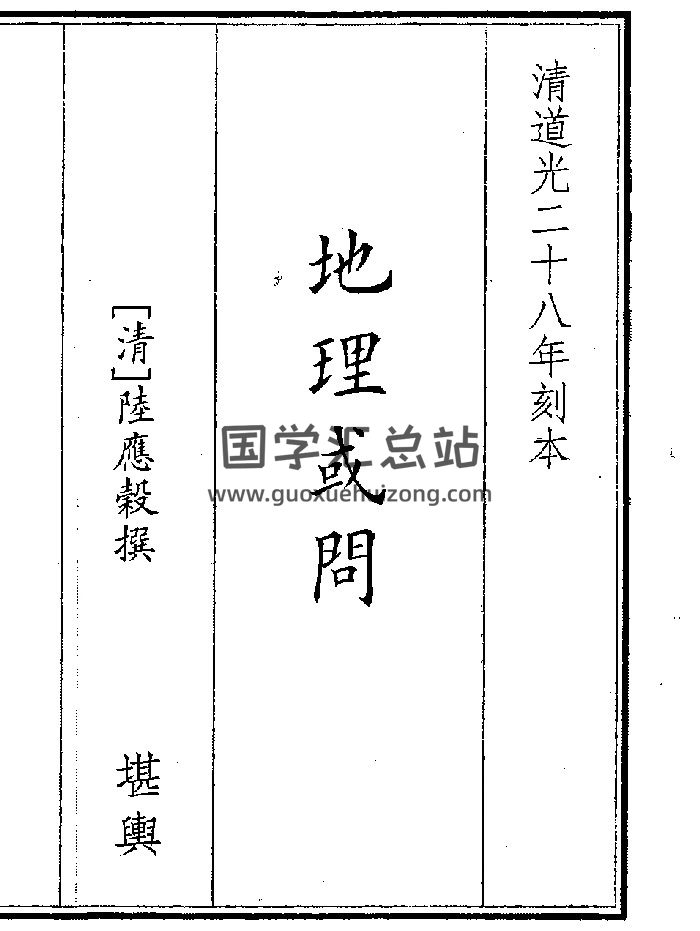 清道光二十八年刻本
地理或問
[清]陸應穀撰
堪輿
国学汇总站
www.guoxuehuizong.com